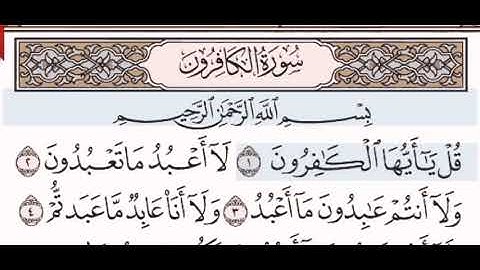 سُورَةُ الكَافِرُونَ
بِسْمِ اللَّهِ الرَّحْمَٰنِ الرَّحِيمِ
قُلْ يَٰٓأَيُّهَا الْكَٰفِرُونَ ١ لَآ أَعْبُدُ مَا تَعْبُدُونَ ٢
وَلَآ أَنتُمْ عَٰبِدُونَ مَآ أَعْبُدُ ٣ وَلَآ أَنَا۠ عَابِدٌ مَّا عَبَدتُّمْ ٤